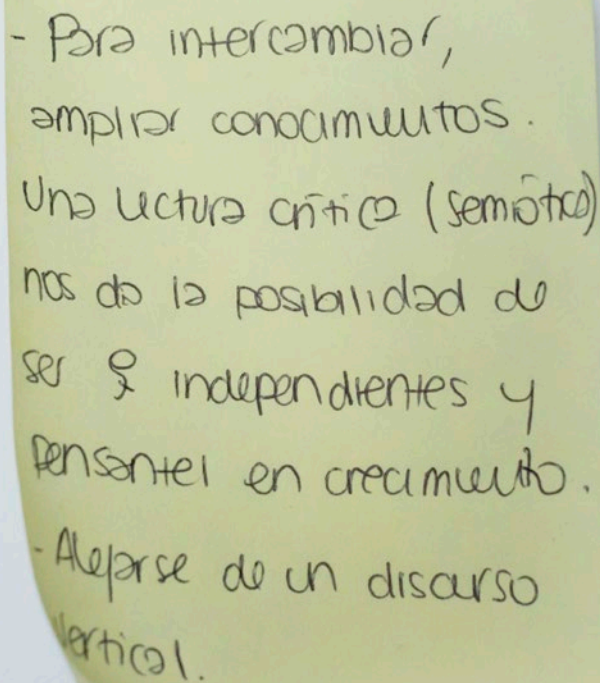 - Para intercambiar,
ampliar conocimientos.
Una lectura crítica (semiótica)
nos da la posibilidad de
ser independientes y
pensantes en crecimiento.
- Alejarse de un discurso
vertical.